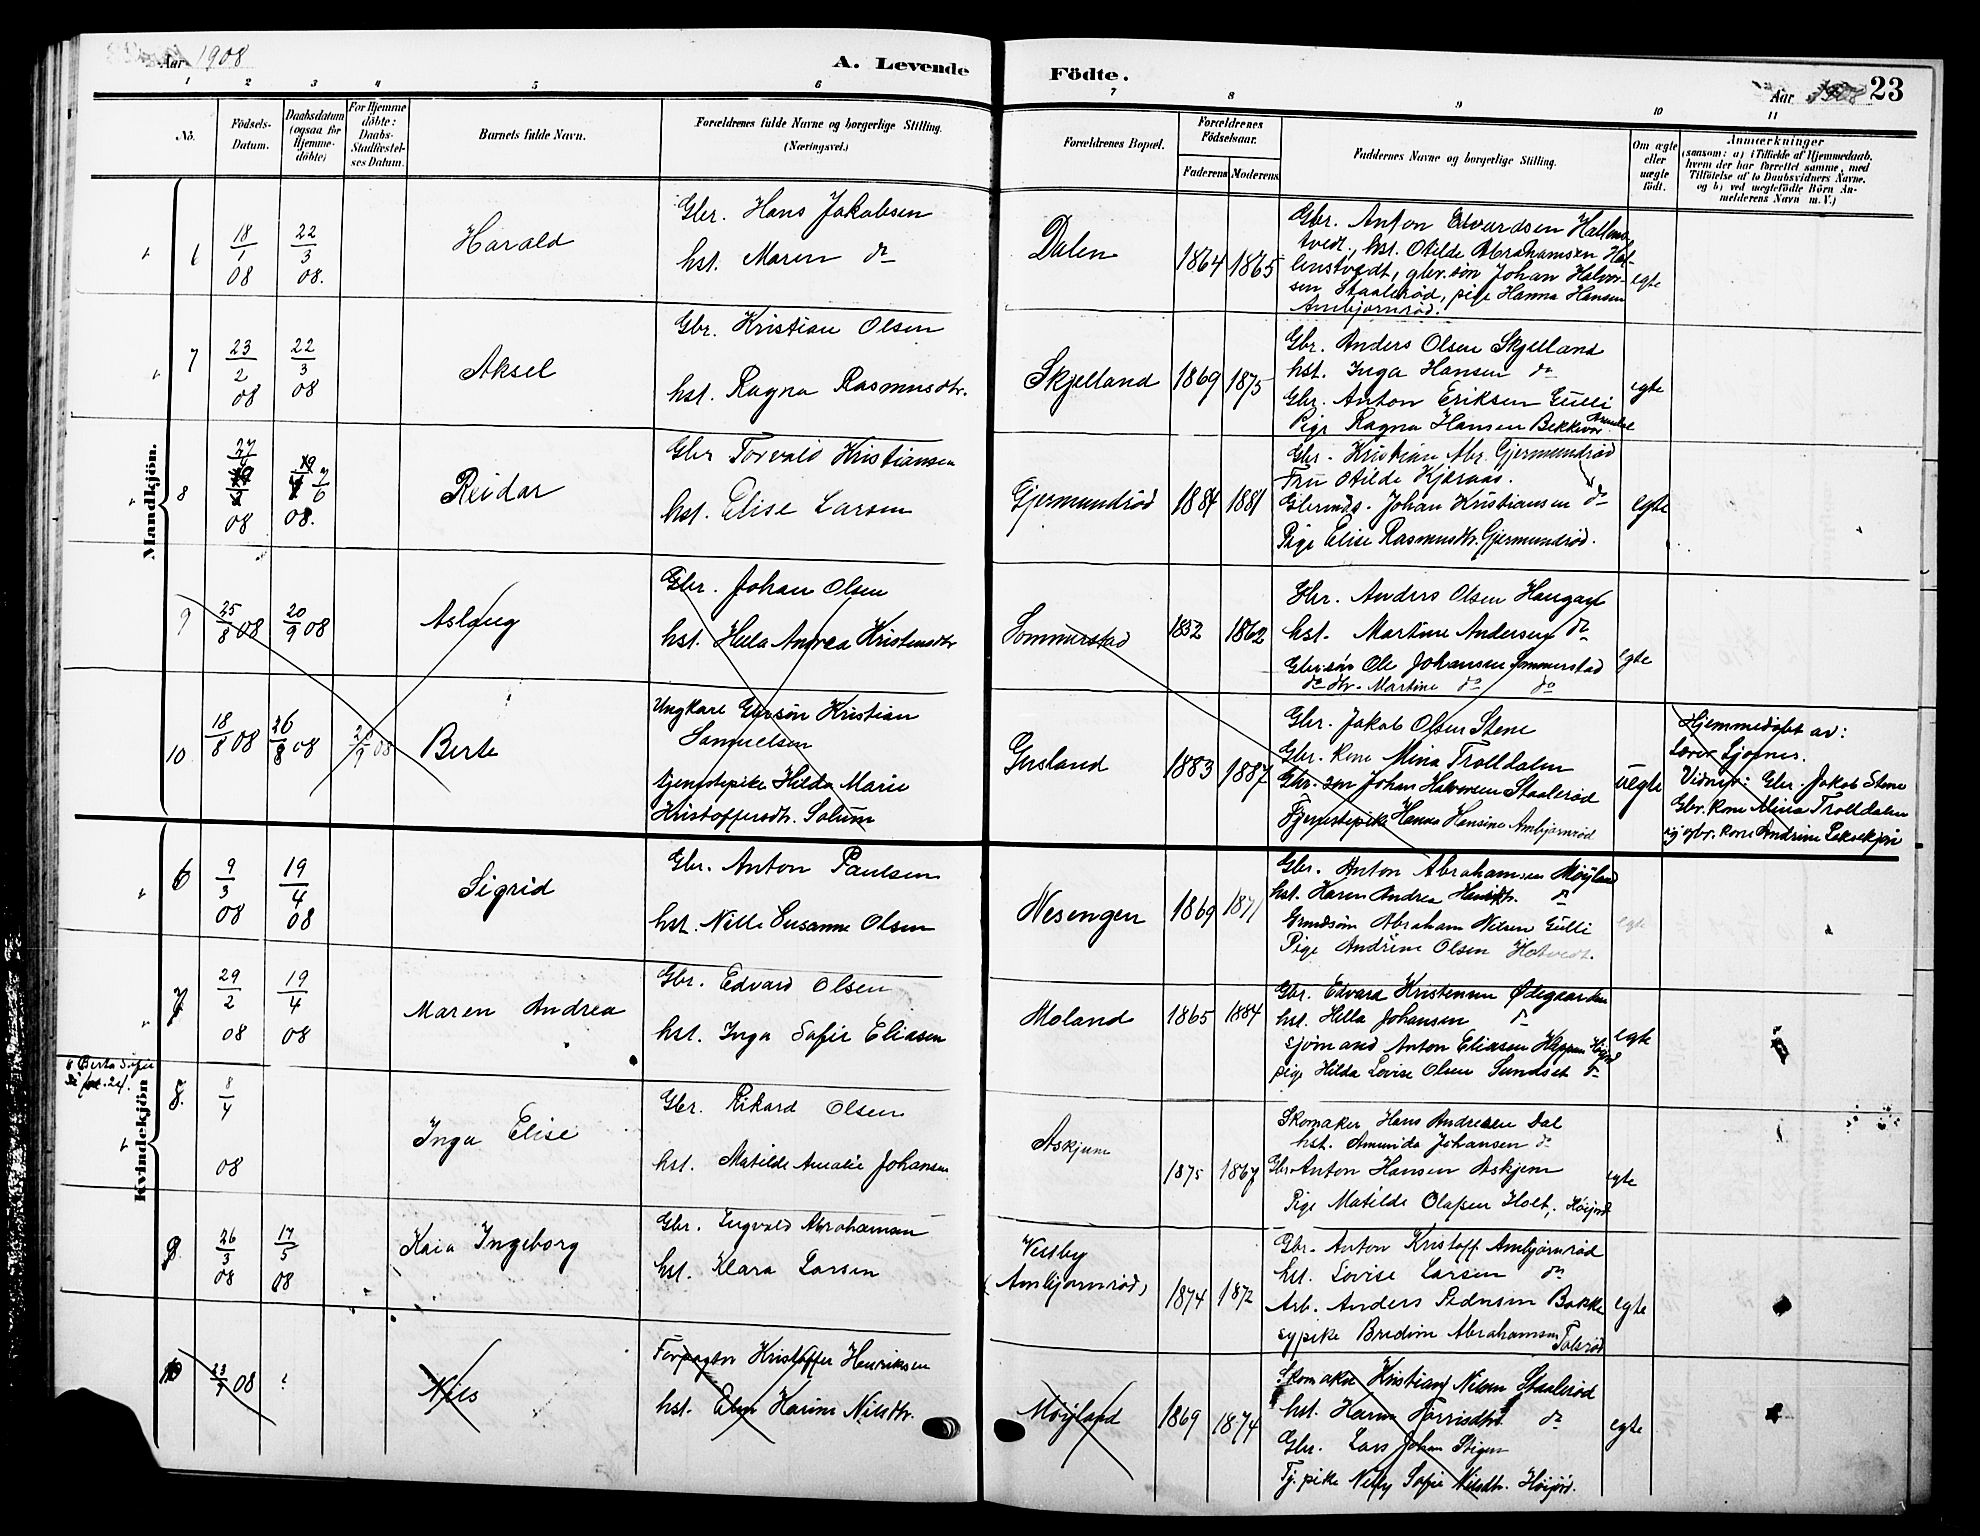 Aar 1908
A. Levende
Födte.
Aar 1908 23
1 2 3 4 5 6 7 8 9 10 11
No.
Födsels-
Datum.
Daabsdatum
(ogsaa for
Hjemme-
döbte)
For Hjemme
döbte:
Daabs-
Stadfæstel-
ses Datum.
Barnets fulde Navn.
Forældrenes fulde Navne og borgerlige Stilling.
(Næringsvei.)
Forældrenes Bopæl.
Forældrenes
Födselsaar.
Faderens Moderens
Faddernes Navne og borgerlige Stilling.
Om ægte
eller
uægte
födt.
Anmærkninger
(saasom: a) i Tilfælde af Hjemmedaab,
hvem der har forrettet samme, med
Tilföielse af to Daabsvidners Navne,
og b) ved uægtefödte Börn An-
melderens Navn m. V.)
Mandkjön.
6
18/1 08
22/3 08.
Harald
Gbr. Hans Jakobsen
hst. Maren do
Dalen
1864 1865
Gbr. Anton Edvardsen Hallens-
tvedt, hst. Otilde Abrahamsen Hal-
lenstvedt, gbr. søn Johan Halvor-
sen Staalerød, pige Hanna Hansen
Ambjørnrød.
egte
7
23/2 08
22/3 08
Aksel
Gbr. Kristian Olsen
hst. Ragna Rasmusdtr.
Skjelland
1869 1875
Gbr. Anders Olsen Skjelland
hst. Inga Hansen do
Gbr. Anton Eriksen Gulli
Pige Ragna Hansen Bekkevar
egte
8
27/4 08
7/6 08.
Reidar
Gbr Torvald Kristiansen
hst. Elise Larsen
Gjermundrød
1884 1881
Gbr. Kristian Abr. Gjermundrød
Fru Otilde Kjæraas.
Gbrmds. Johan Kristiansen do
Pige Elise Rasmusdtr. Gjermundrød.
egte
9
25/8 08
20/9 08
Aslaug
Gbr. Johan Olsen
hst. Hella Andrea Kristensdtr
Sommerstad
1852 1862
Gbr. Anders Olsen Haugan
hst. Martine Andersen do
Gbr. søn Ole Johansen Sommerstad
do dtr. Martine do do
egte
10
18/8 08
26/8 08
20/9 08
Berte
Ungkarl Gbrsøn Kristian
Samuelsen
tjenestepike Hilda Marie
Kristoffersdtr. Solum
Gusland
1883 1887
Gbr. Jakob Olsen Stene
Gbr. kone Mina Trolldalen
Gbr. søn Johan Halvorsen Staalerød
Tjenestepike Hanna Hansine Ambjørnrød
uegte
Hjemmedøbt av:
Lærer Gjøsnes.
Vidner: Gbr. Jakob Stene
Gbr. kone Mina Trolldalen
og gbr. kone Andrine
Kvindekjön
6
9/3 08
19/4 08
Sigrid
Gbr. Anton Paulsen
hst. Nille Susanne Olsen
Nesengen
1869 1871
Gbr. Anton Abrahamsen Møyland
hst. Karen Andrea Henriks. do
Grmdsøn Abraham Nilsen Gulli
Pige Andrine Olsen Hotvedt.
egte
7
29/2 08
19/4 08
Maren Andrea
Gbr. Edvard Olsen
hst. Inga Sofie Eliasen
Moland
1865 1884
Gbr. Edvard Kristensen Ødegaarden
hst. Hella Johansen do
Sjømand Anton Eliasen
pige Hilda Lovise Olsen Sundset do
egte
8 Berta Sofie
Se pa. 24.
8.
8/4 08
Inga Elise
Gbr. Rikard Olsen
hst. Matilde Amalie Johansen
Askjum
1875 1867
Skomaker Hans Andersen Dal
hst. Amunda Johansen do
Gbr. Anton Hansen Askjem
Pige Matilde Olafsen Holt, Høijord
egte
9
26/3 08
17/5 08
Kaia Ingeborg
Gbr. Ingvald Abrahamsen
hst. Klara Larsen
Vestby
(Ambjørnrød)
1874 1872
Gbr. Anton Kristoff. Ambjørnrød
hst. Lovise Larsen do
Arb. Anders Pedersen Bakke
sypike Bredine Abrahamsen Tolsrød
egte
10
23/7 08
?
Nils
Forpagter Kristoffer Henriksen
hst. Elen Karine Nilsdtr.
Møyland
1869 1874
Skomaker Kristian Nilsen Staalerød
hst. Karen Torrisdtr do
Gbr. Lars Johan Stigen
Tj. pike Nelly Sofie Nilsdtr. Høijord.
egte